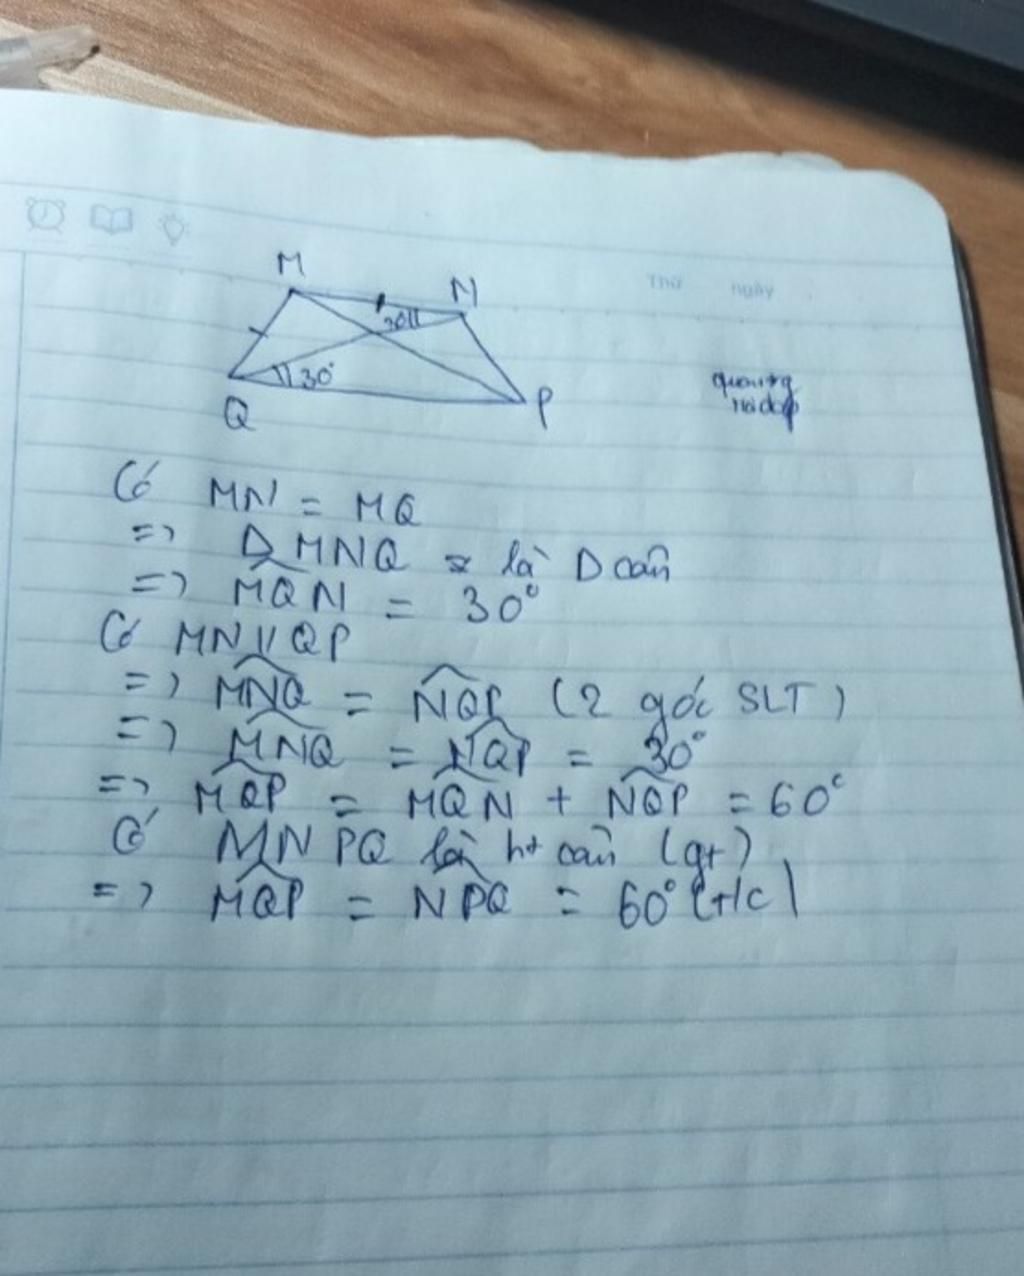 Thứ ngày
M
N
30
30°
Q
P
Có MN = MQ
=> Δ MNQ là Δ cân
=> MQN = 30°
Có MN // QP
=> MNQ = NQP (2 góc SLT)
=> MNQ = NQP = 30°
=> MQP = MQN + NQP = 60°
Có MNPQ là ht cân (gt)
=> MQP = NPQ = 60° (t/c)